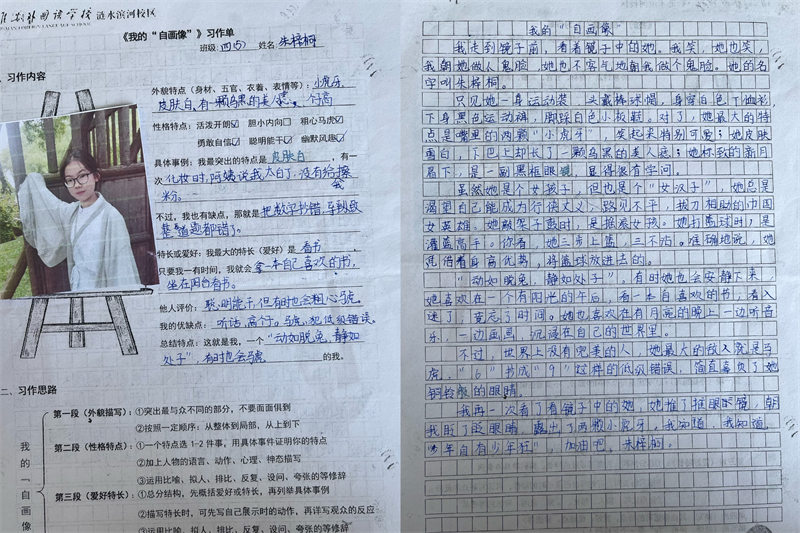 外国语学校 涟水滨河校区
《我的“自画像”》习作单
班级 四(5) 姓名 朱梓桐
一、习作内容
外貌特点(身材、五官、衣着、表情等):小虎牙
皮肤白,有一颗乌黑的美人痣。个高
性格特点:活泼开朗☑ 胆小内向☐ 粗心马虎☑
勇敢自信☑ 聪明能干☑ 幽默风趣☑
具体事例:我最突出的特点是 皮肤白 ,有一
次 化妆时,阿姨说我太白了,没有给擦
粉。
不过,我也有缺点,那就是 把数字抄错,导致
整道题都错了。
特长或爱好:我最大的特长(爱好)是 看书 ,
只要我一有时间,我就会 拿一本自己喜欢的书,
坐在阳台看书。
他人评价:聪明能干,但有时也会粗心马虎。
我的优缺点:听话,高个子。马虎,犯低级错误。
总结特点:这就是我,一个“动如脱兔,静如
处子”,有时也会马虎 的我。
二、习作思路
我的“自画像
第一段(外貌描写):①突出最与众不同的部分,不要面面俱到
②按照一定顺序:从整体到局部,从上到下
第二段(性格特点):①一个特点选 1-2 件事,用具体事件证明你的特点
②加上人物的语言、动作、心理、神态描写
③运用比喻、拟人、排比、反复、设问、夸张的等修辞
第三段(爱好特长):①总分结构,先概括爱好或特长,再列举具体事例
②描写特长时,可先写自己展示时的动作,再详写观众的反应
③运用比喻、拟人、排比、反复、设问、夸张的等修辞
我的“自画像”
我走到镜子前,看着镜子中的她。我笑,她也笑,
我朝她做人鬼脸,她也不客气地朝我做个鬼脸。她的名
字叫朱梓桐。
只见她一身运动装,头戴棒球帽,身穿白色T恤衫,
下身黑色运动裤,脚踩白色小板鞋。对了,她最大的特
点是嘴里的两颗“小虎牙”,笑起来特别可爱;她皮肤
雪白,下巴上却长了一颗乌黑的美人痣;她标致的新月
眉下,是一副黑框眼镜,显得很有学问。
虽然她是个女孩子,但也是个“女汉子”,她总是
渴望自己能成为行侠丈义、路见不平,拔刀相助的巾国
女英雄。她敲架子鼓时,是摇滚女孩。她打篮球时,是
灌篮高手。你看,她三步上篮,三不沾。准确地说,她
凭借着身高优势,将篮球放进去的。
“动如脱兔,静如处子”,有时她也会安静下来,
她喜欢在一个有阳光的午后,看一本自喜欢的书,看入
迷了,竟忘了时间。她也喜欢在有月亮的晚上一边听音
乐,一边画画,沉浸在自己的世界里。
不过,世界上没有完美的人,她最大的敌人就是马
虎,“6”书成“9”这样的低级错误,简直辜负了她
铜铃般的眼睛。
我再一次看了看镜子中的她,她推了推眼镜,朝
我眨了眨眼睛,露出了两颗小虎牙,我知道,我知道,
“少年自有少年狂”,加油吧,朱梓桐。